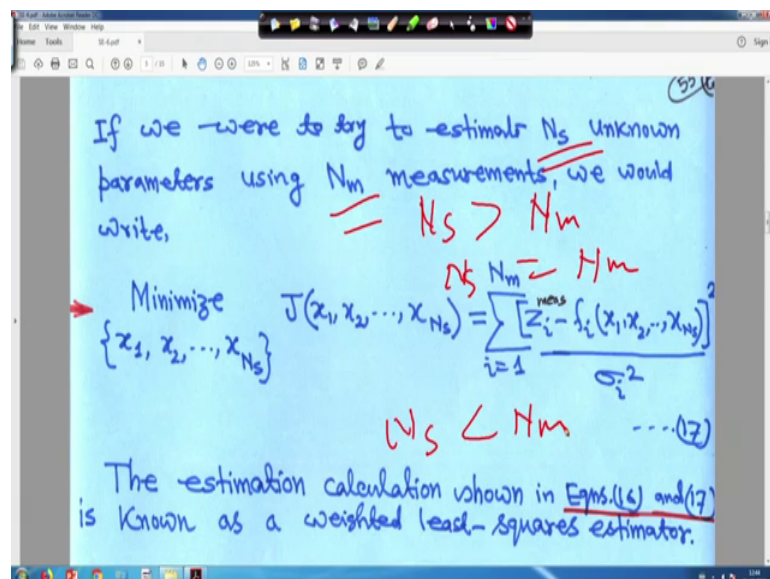 SE-6.pdf - Adobe Acrobat Reader DC
File Edit View Window Help
Home Tools SE-6.pdf × Sign
1 / 15 125%
If we were to try to estimate Ns unknown
parameters using Nm measurements, we would
write,
Ns > Nm
Ns = Nm
Minimize J(x1, x2, ..., xNs) = Nm ∑ i=1 [zi meas - fi(x1, x2, .., xNs)]2 / σi2
{x1, x2, ..., xNs}
Ns < Nm
....(17)
The estimation calculation shown in Eqns.(16) and (17)
is known as a weighted least-squares estimator.